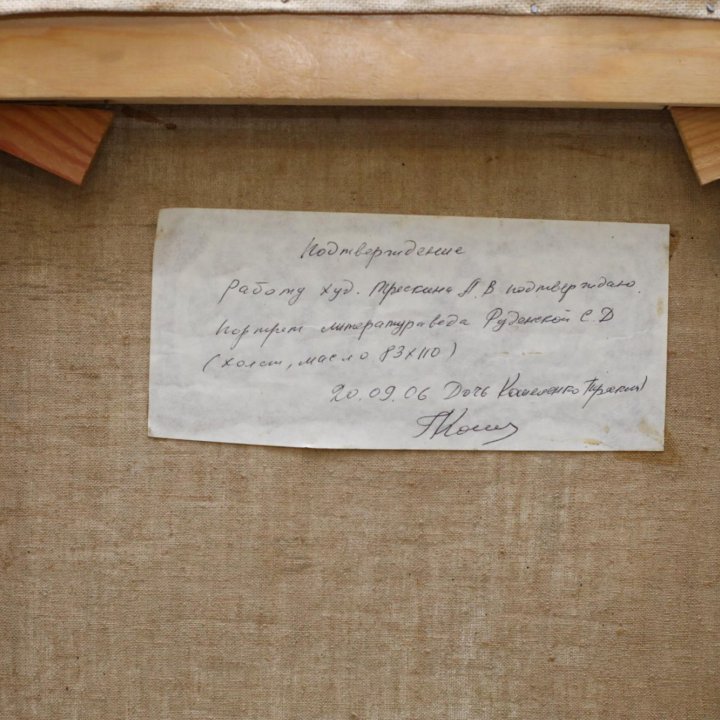 Подтверждение
Работу худ. Трескина А.В. подтверждаю.
Портрет литературоведа Руденской С.Д
(холст, масло 83х110)
20.09.06 Дочь